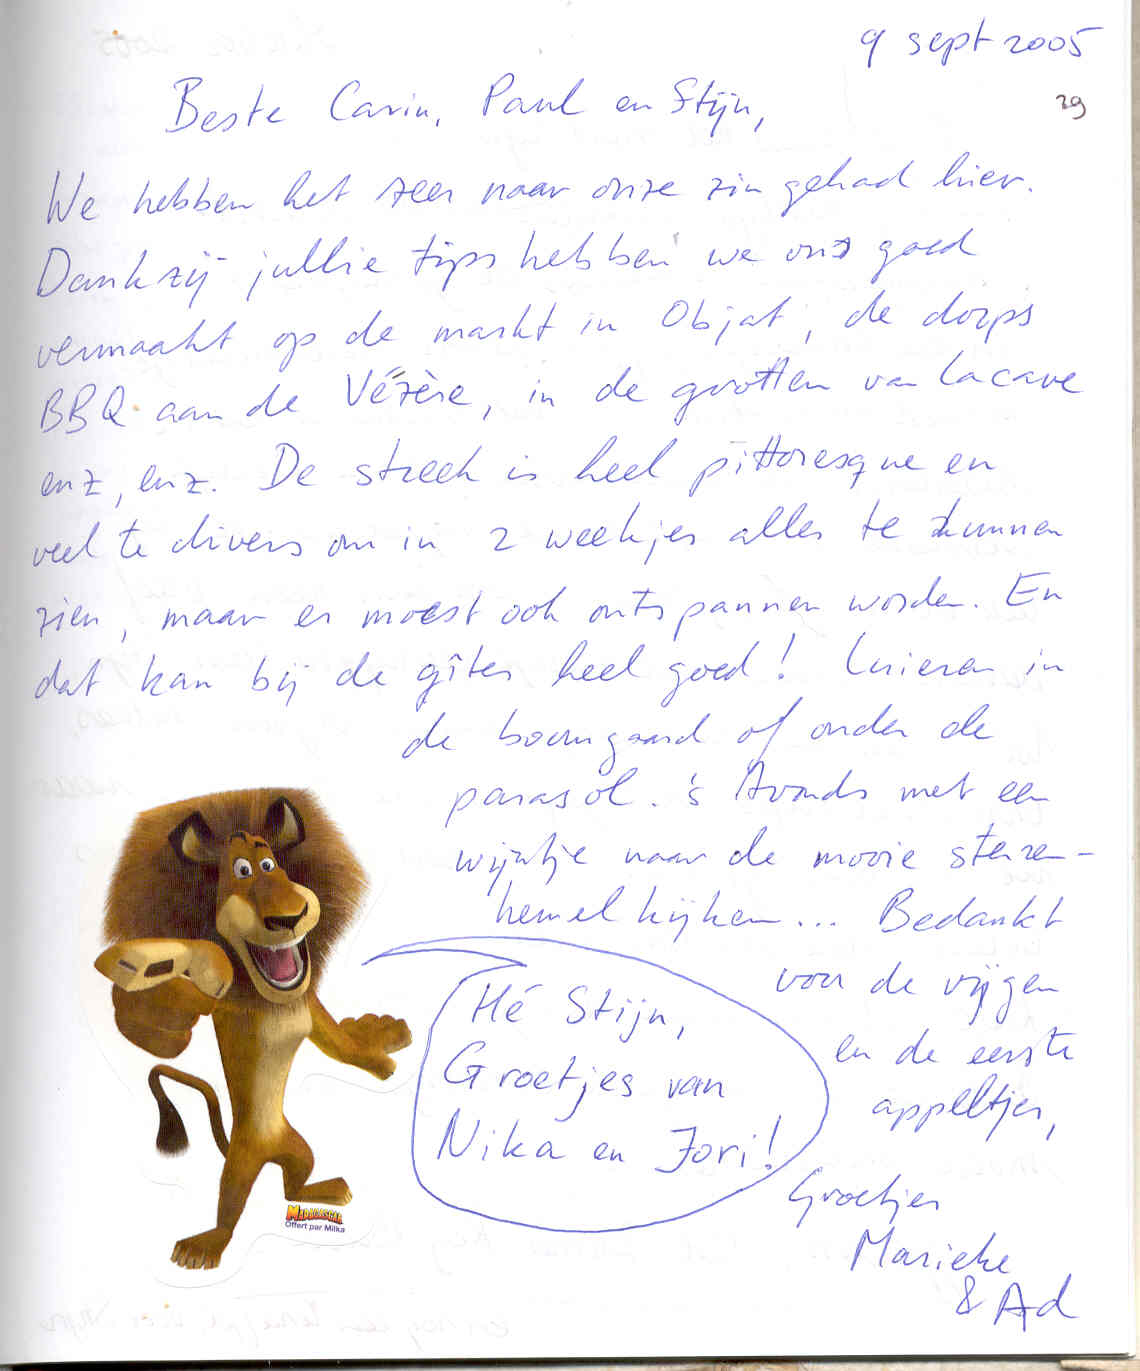 9 sept 2005
29
Beste Carin, Paul en Stijn,
We hebben het zeer naar onze zin gehad hier.
Dankzij jullie tips hebben we ons goed
vermaakt op de markt in Objat, de dorps
BBQ aan de Vézère, in de grotten van Lacave
enz, enz. De streek is heel pittoresque en
veel te divers om in 2 weekjes alles te kunnen
zien, maar er moest ook ontspannen worden. En
dat kan bij de gîtes heel goed! Luieren in
de boomgaard of onder de
parasol. 's Avonds met een
wijntje naar de mooie sterren-
hemel kijken... Bedankt
voor de vijgen
en de eerste
appeltjes,
Groetjes
Marieke
& Ad
Hé Stijn,
Groetjes van
Nika en Jori!
MADAGASCAR
Offert par Milka